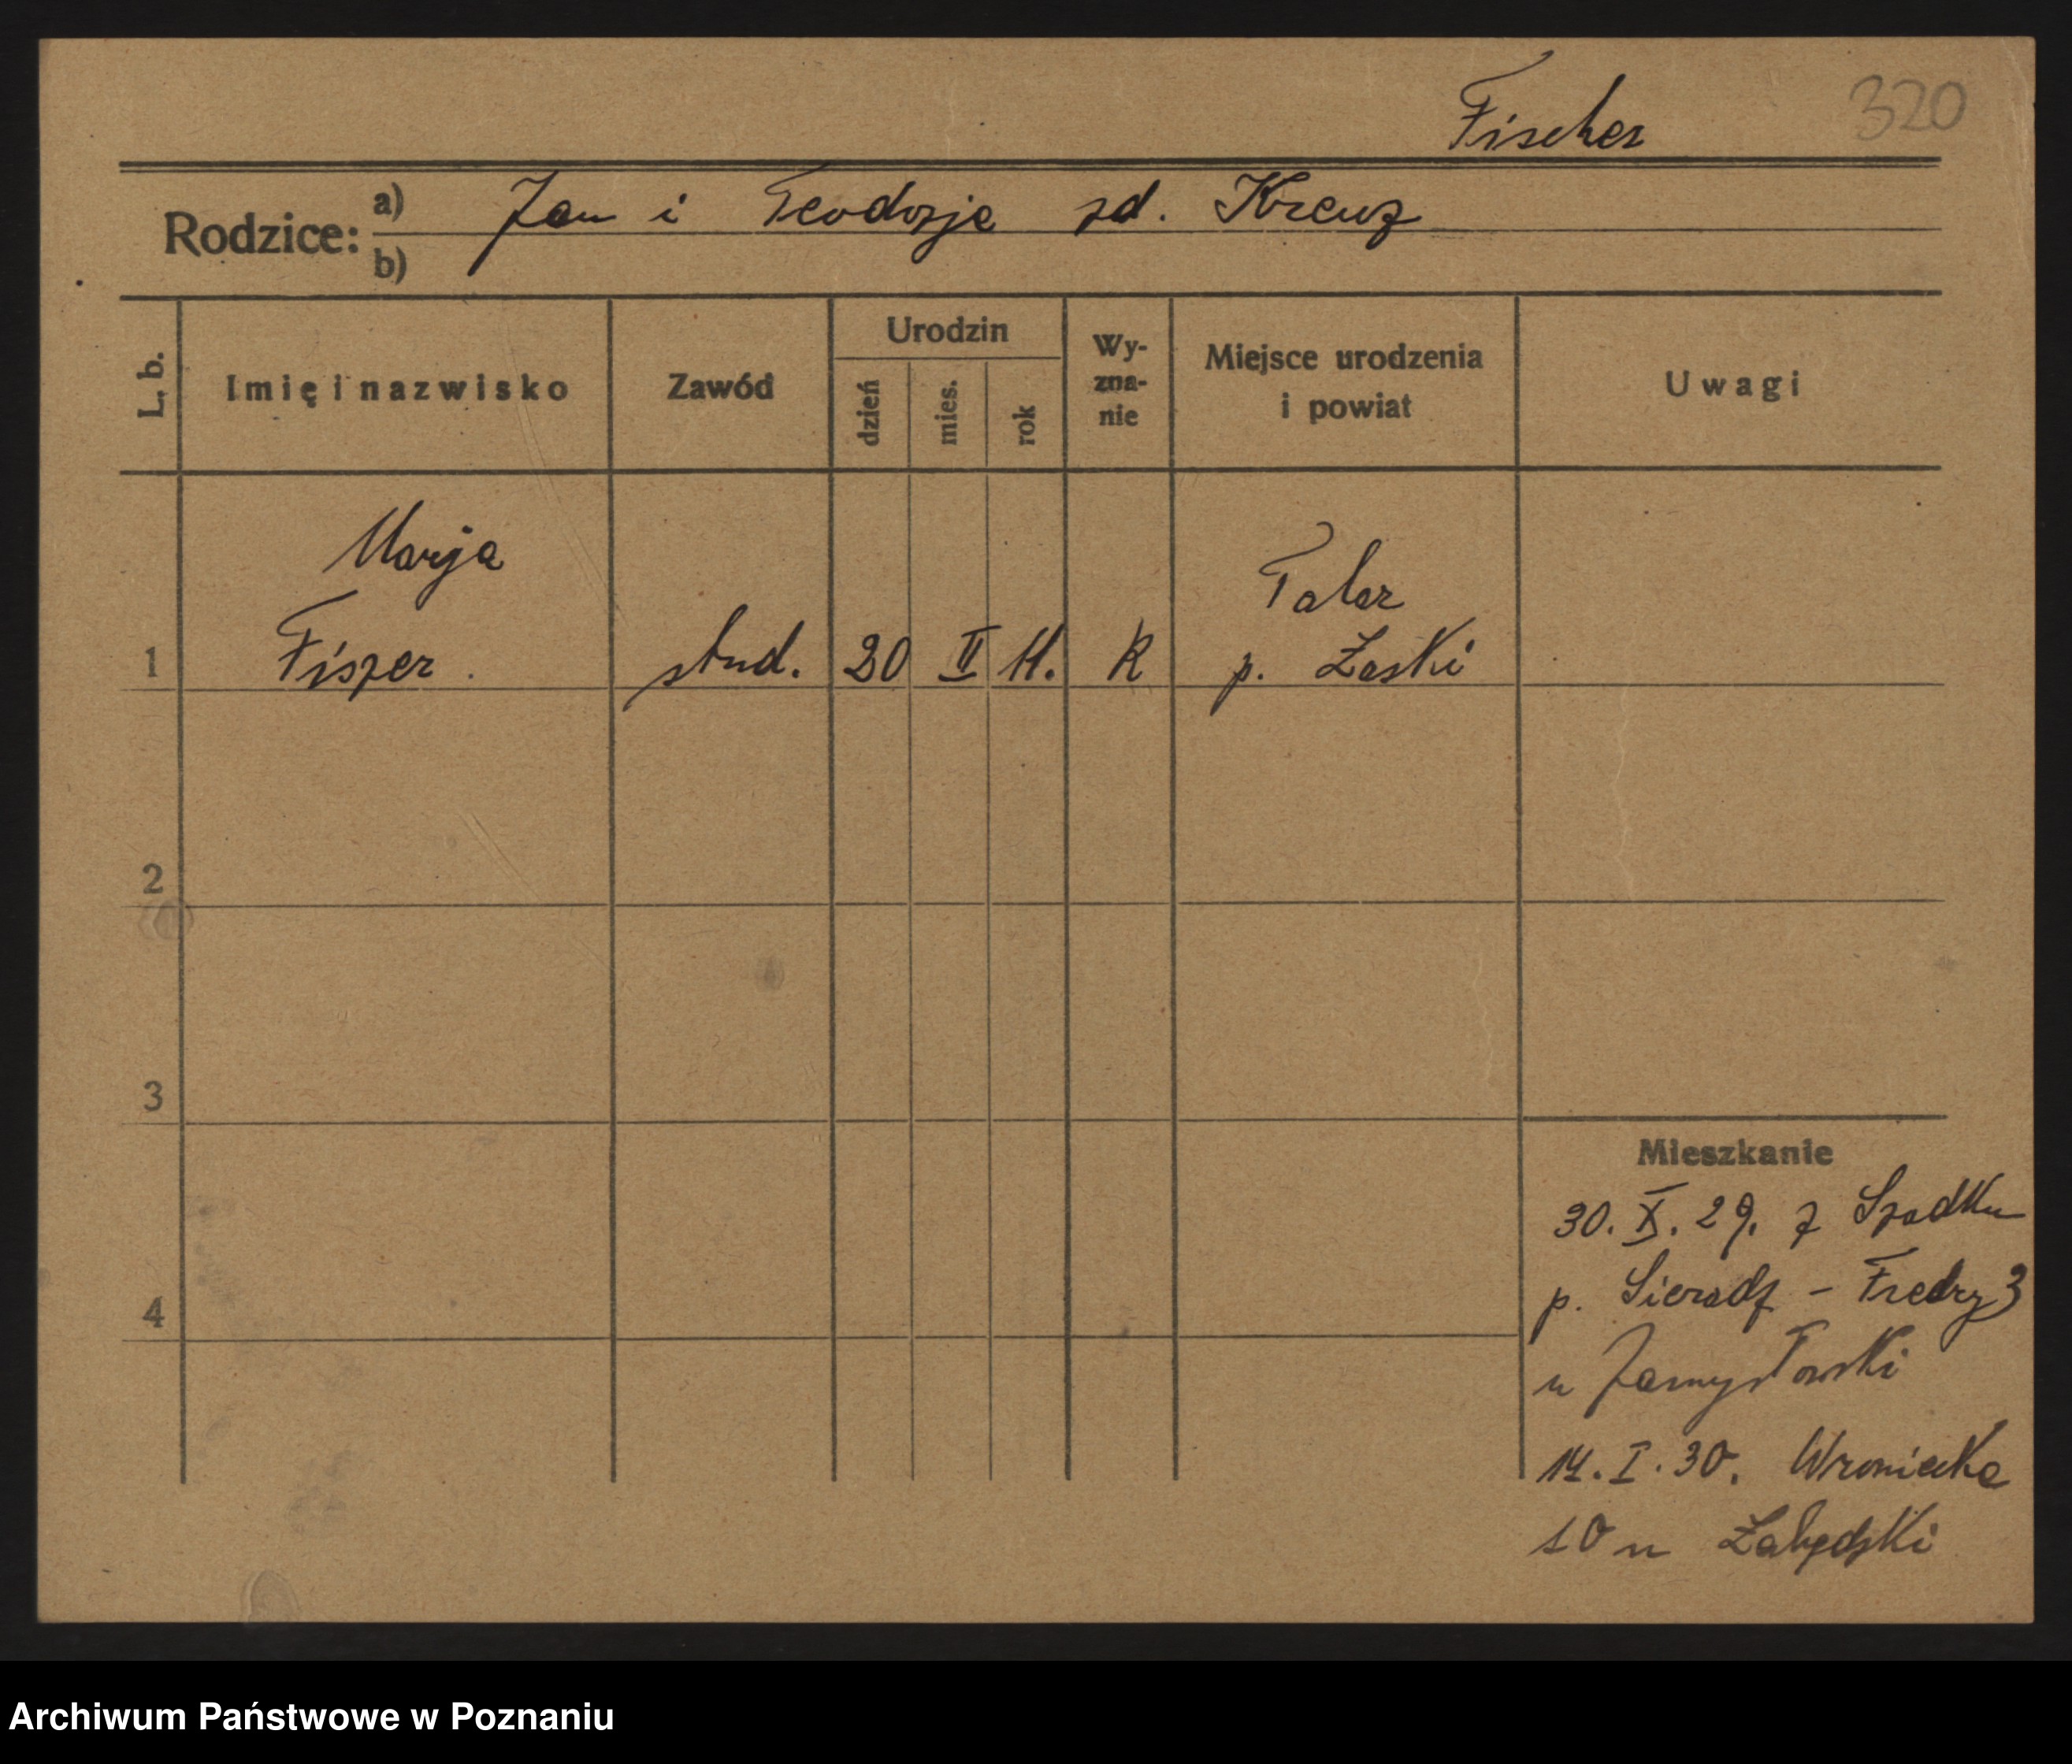 Fischer 320
Rodzice: a) Jan i Teodozja zd. Kreuz
b)
L. b. Imię i nazwisko Zawód Urodzin dzień mies. rok Wy-zna-nie Miejsce urodzenia i powiat Uwagi
Marja Talar
1 Fiszer. stud. 20 II 11. R p. Łaski
2
3
Mieszkanie
30. X. 29. z Szadku
4 p. Sieradz - Fredry 3
u Zamysłowski
14. I. 30. Wroniecka
10 u Łabędzki
Archiwum Państwowe w Poznaniu